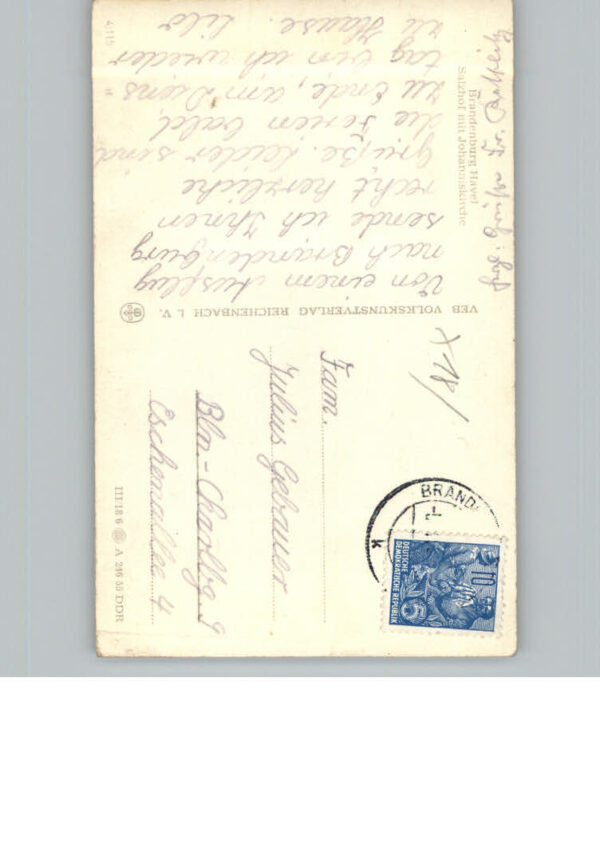 Brandenburg Havel
Salzhof mit Johanniskirche
Von einem Ausflug
nach Brandenburg
sende ich Ihnen
recht herzliche
Grüße. Leider sind
die Ferien bald
zu Ende, am Diens=
tag bin ich wieder
zu Hause. Lilo
4/115
VEB VOLKSKUNSTVERLAG REICHENBACH I. V.
Fam.
Julius Gebauer
Bln.-Charlbg. 9
Eschenallee 4
III/18 6 A 246 55 DDR
BRAND
k
10
DEUTSCHE
DEMOKRATISCHE REPUBLIK